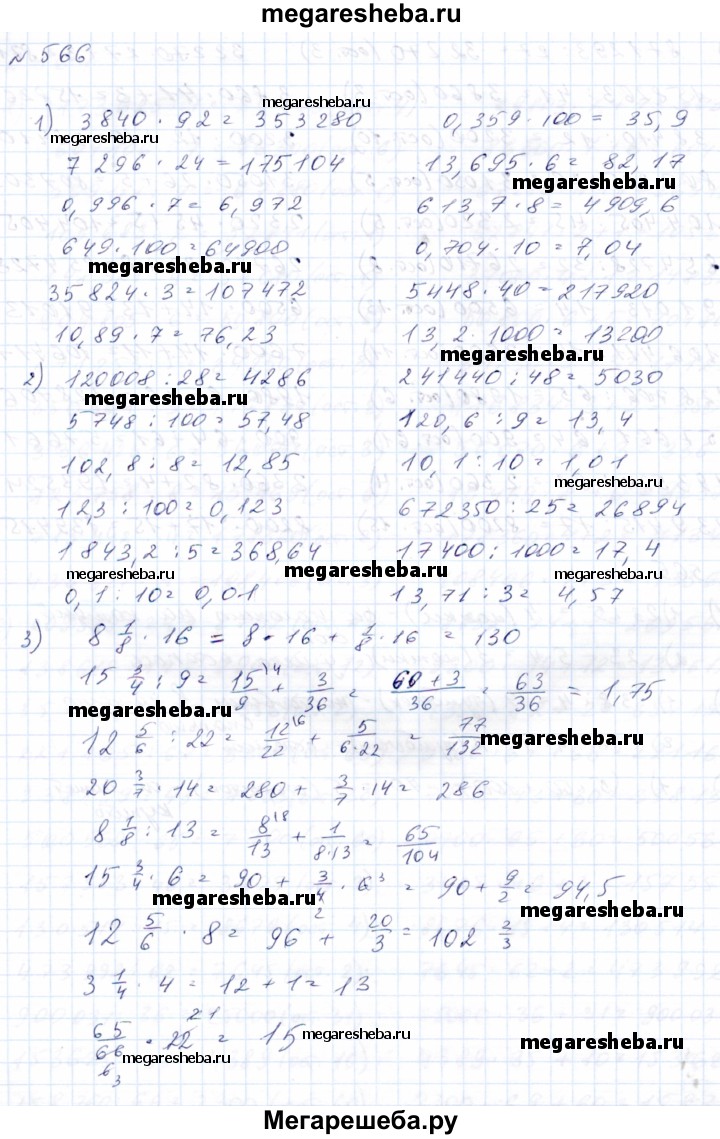 megaresheba.ru
№ 566
megaresheba.ru
1) 3840 · 92 = 353280 0,359 · 100 = 35,9
megaresheba.ru
7 296 · 24 = 175104 13,695 · 6 = 82,17
megaresheba.ru
0,996 · 7 = 6,972 613,7 · 8 = 4909,6
649 · 100 = 64900 0,704 · 10 = 7,04
megaresheba.ru
35824 · 3 = 107472 5448 · 40 = 217920
10,89 · 7 = 76,23 13,2 · 1000 = 13200
megaresheba.ru
2) 120008 : 28 = 4286 241440 : 48 = 5030
megaresheba.ru
5748 : 100 = 57,48 120,6 : 9 = 13,4
102,8 : 8 = 12,85 10,1 : 10 = 1,01
megaresheba.ru
12,3 : 100 = 0,123 672350 : 25 = 26894
1843,2 : 5 = 368,64 17400 : 1000 = 17,4
megaresheba.ru megaresheba.ru megaresheba.ru
0,1 : 10 = 0,01 13,71 : 3 = 4,57
3) 8 1/8 · 16 = 8 · 16 + 1/8 · 16 = 130
15 3/4 : 9 = 15\4/9 + 3/36 = 60+3/36 = 63/36 = 1,75
megaresheba.ru
12 5/6 : 22 = 12\6/22 + 5/6·22 = 77/132
megaresheba.ru
20 3/7 · 14 = 280 + 3/7 · 14 = 286
8 1/8 : 13 = 8\8/13 + 1/8·13 = 65/104
15 3/4 · 6 = 90 + 3/4 2 · 6 3 = 90 + 9/2 = 94,5
megaresheba.ru
megaresheba.ru
12 5/6 · 8 = 96 + 20/3 = 102 2/3
3 1/4 · 4 = 12 + 1 = 13
65/66 · 22 = 15
megaresheba.ru
megaresheba.ru megaresheba.ru
Мегарешеба.ру